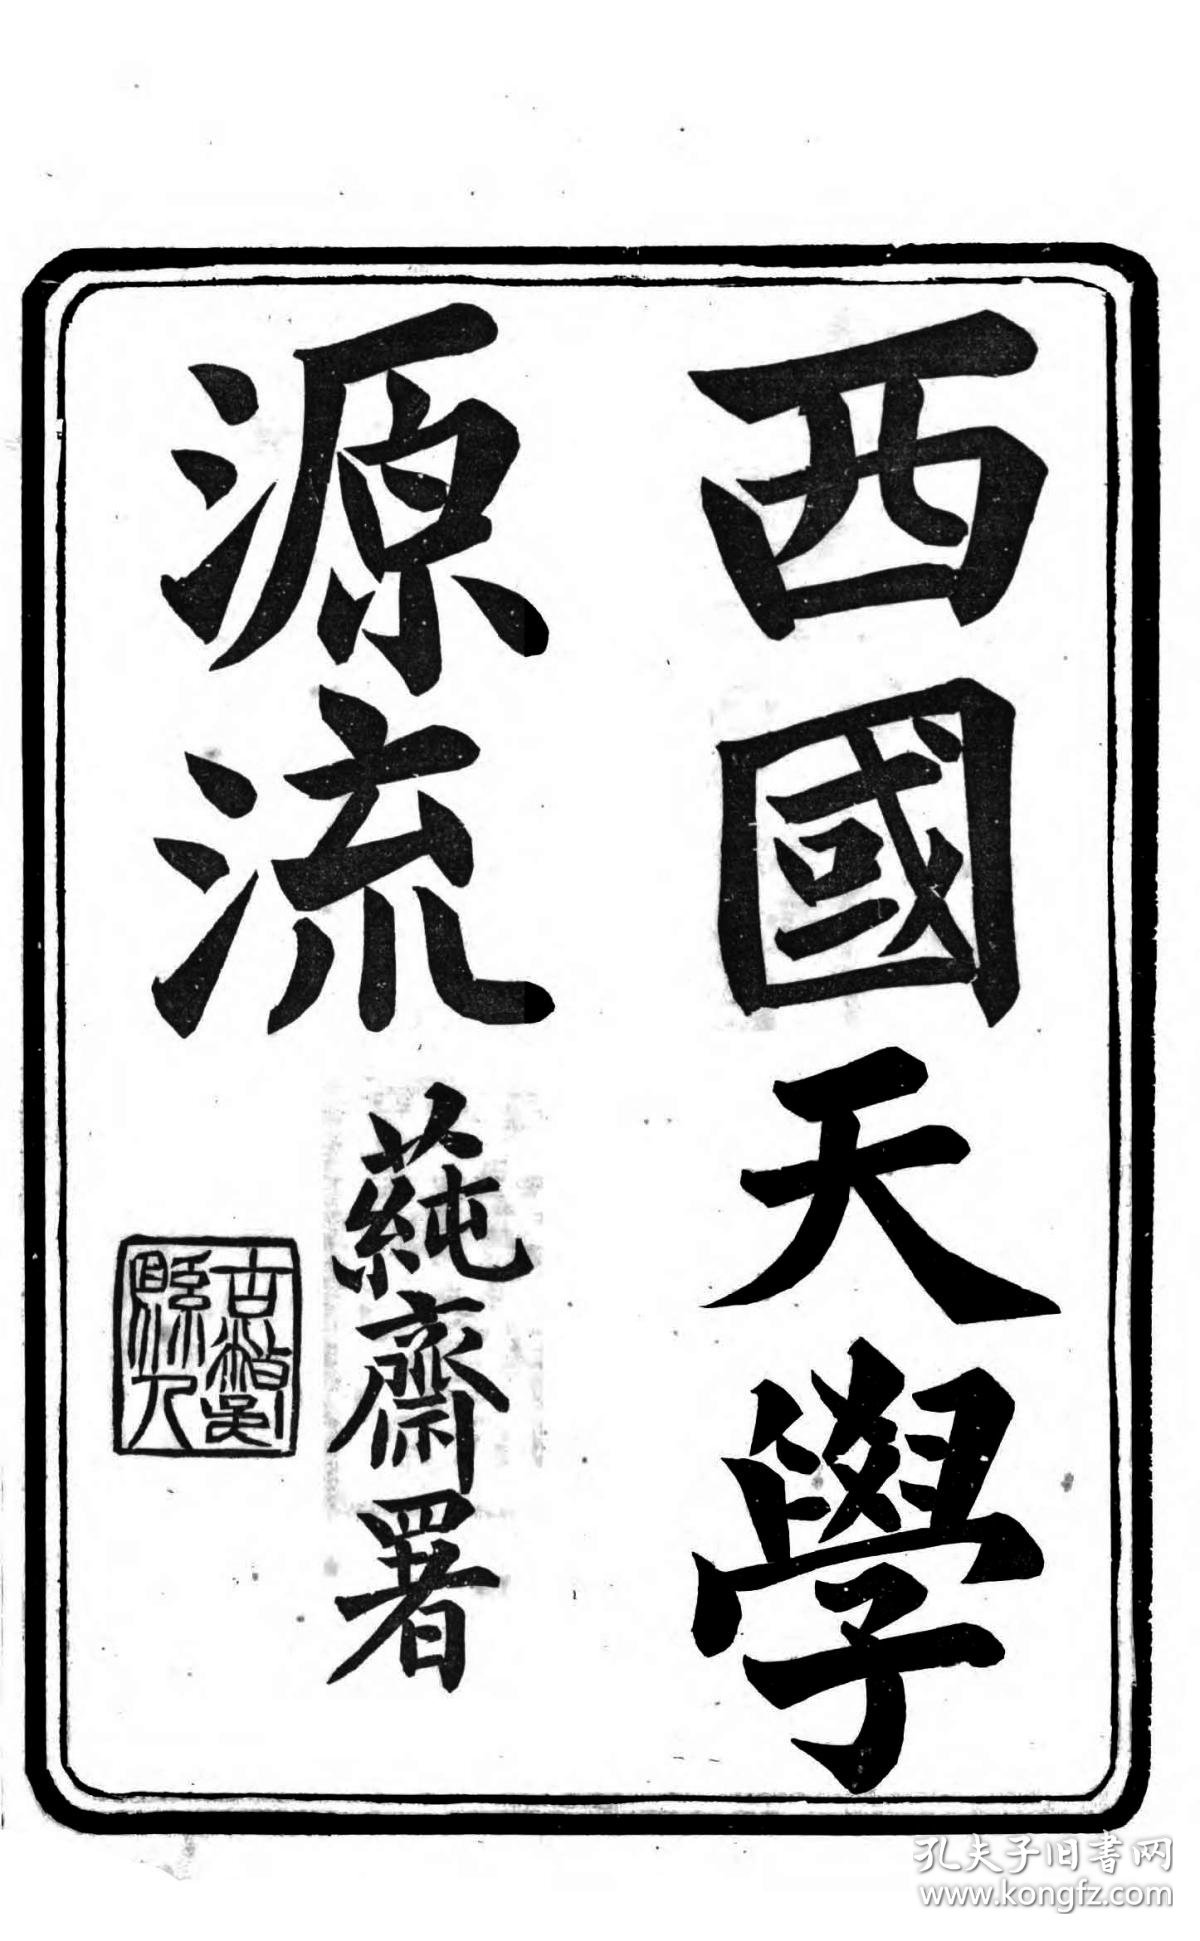 西國天學
源流
蒓齋署
孔夫子旧書网
www.kongfz.com